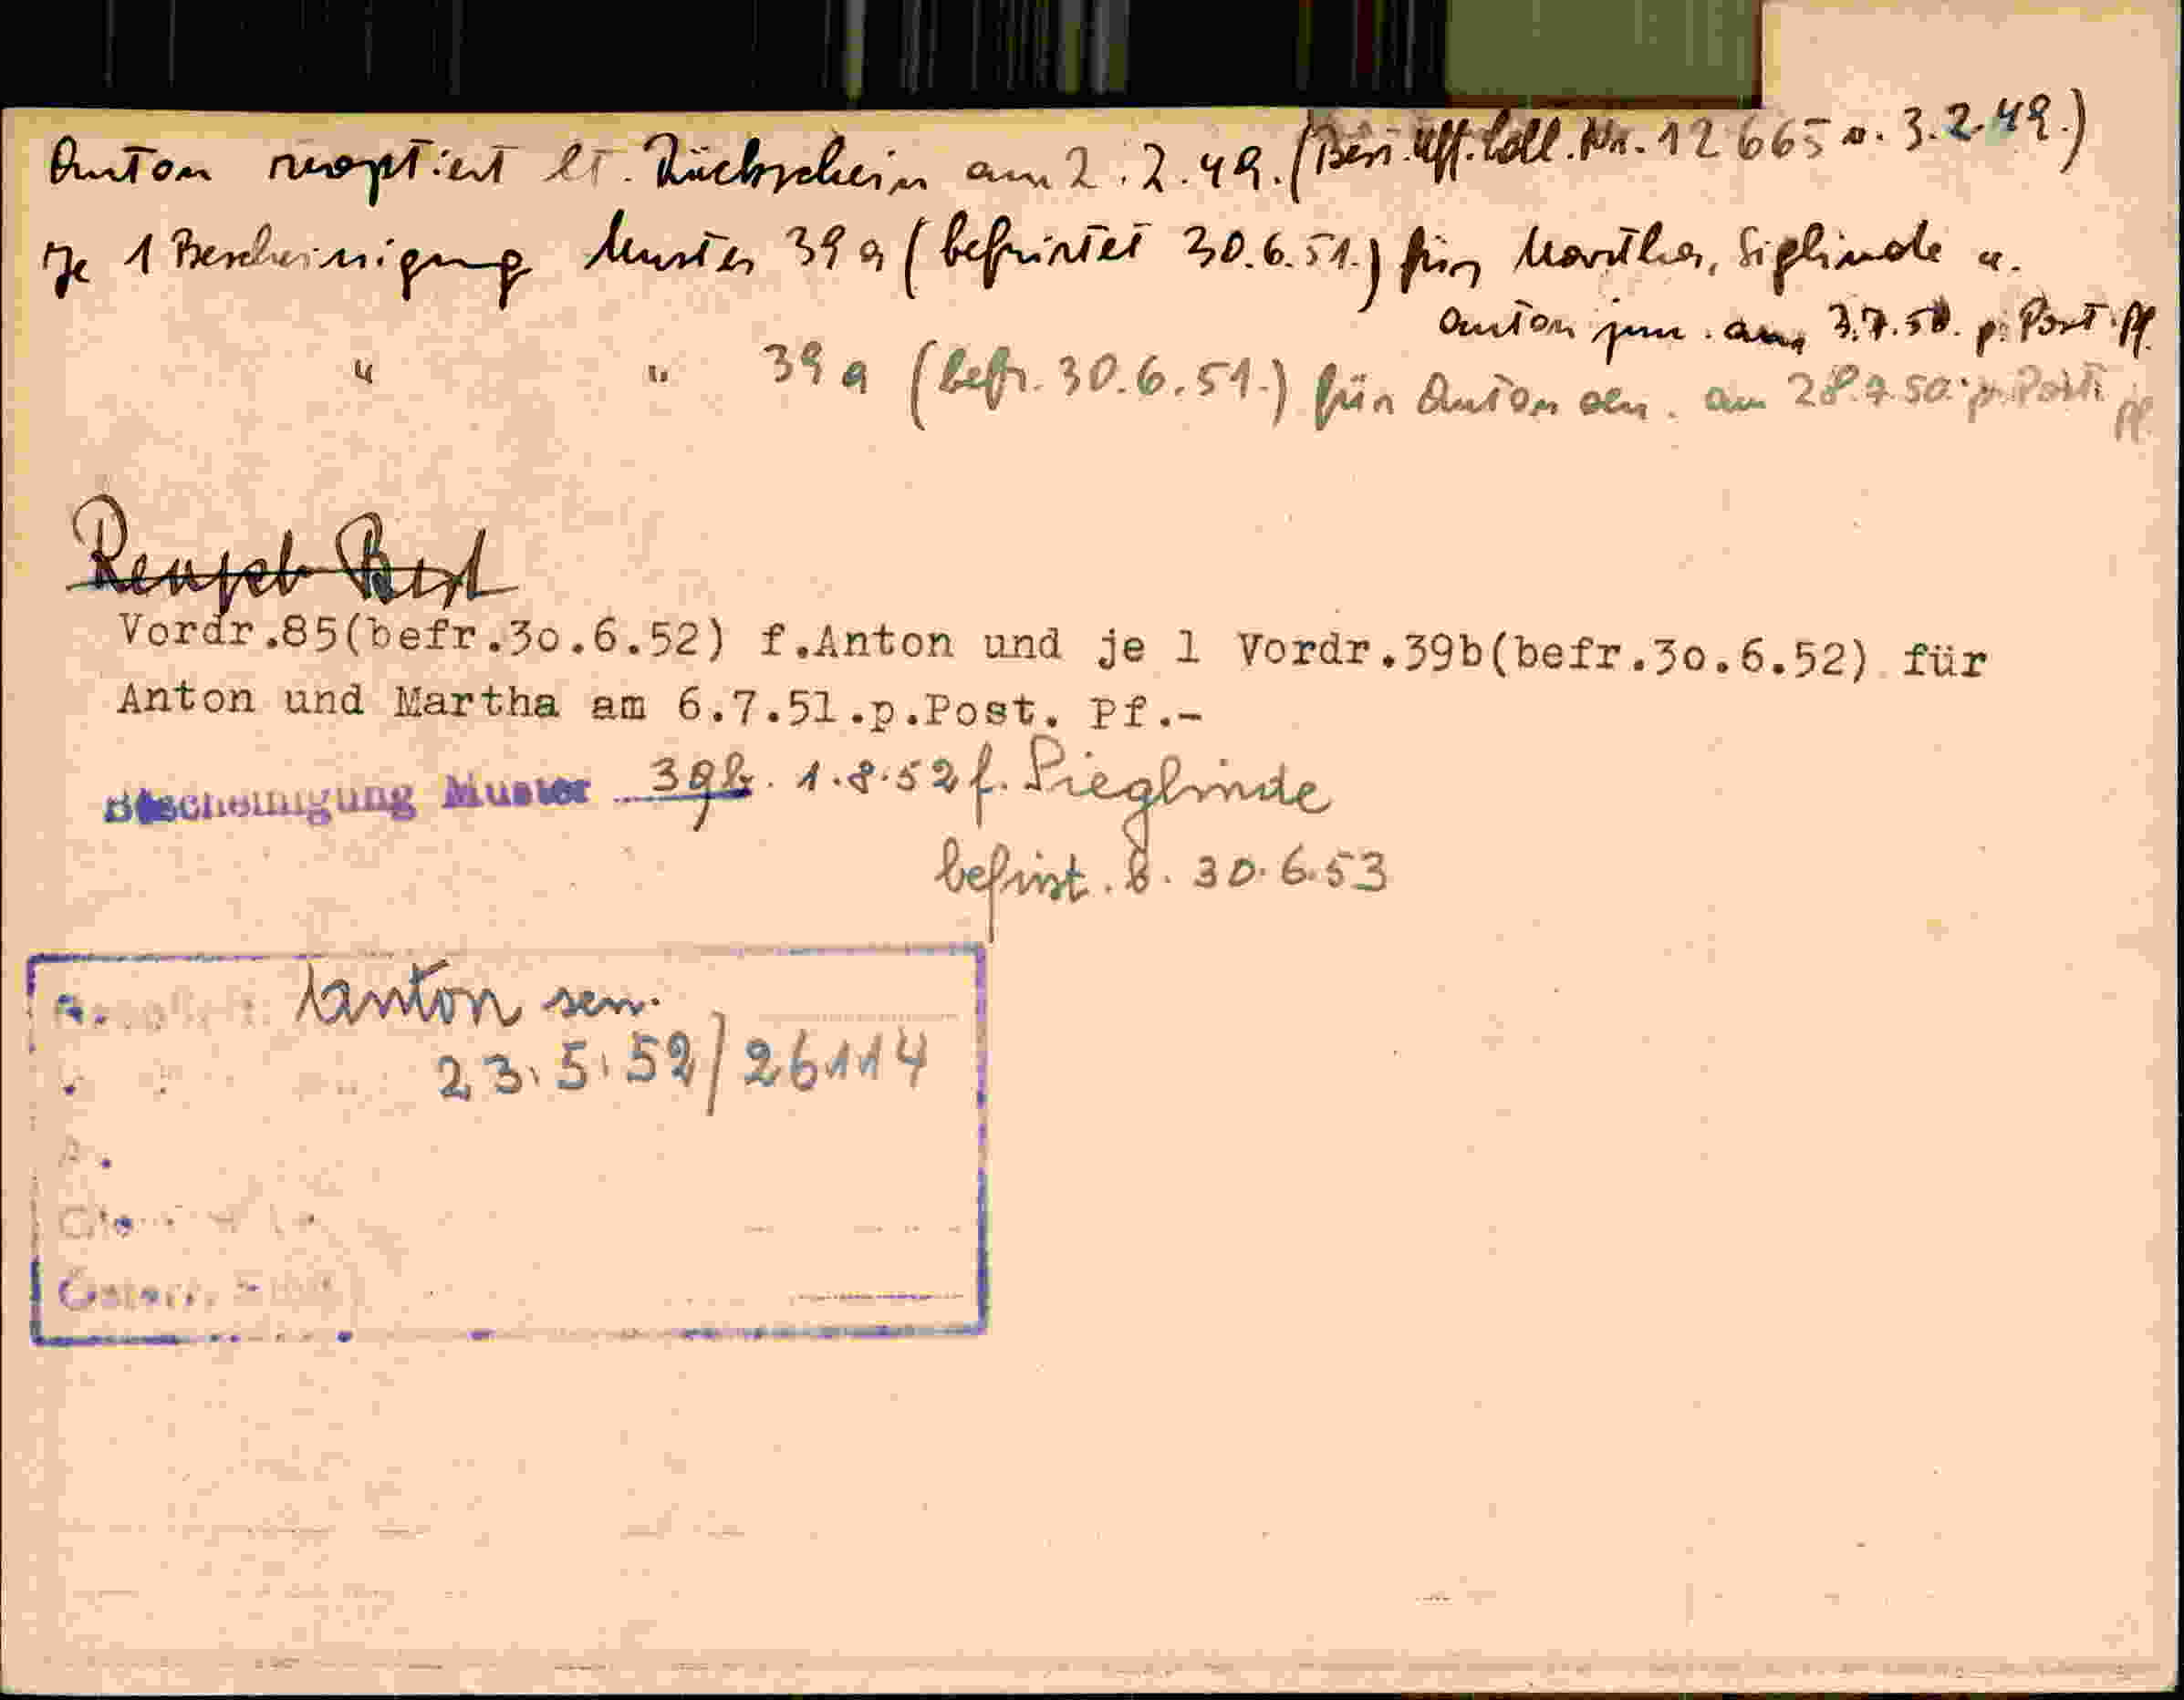 Anton reoptiert lt. Rückschein am 2.2.49. (Ben. Uff. Coll. Nr. 12665 v. 3.2.49.)
Je 1 Bescheinigung Muster 39 a (befristet 30.6.51.) für Martha, Siglinde u.
Anton jun. am 3.7.50. p. Post. Pf.
" " 39 a (befr. 30.6.51.) für Anton sen. am 28.7.50. p. Post. Pf.
Vordr.85(befr.3o.6.52) f.Anton und je l Vordr.39b(befr.3o.6.52) für
Anton und Martha am 6.7.51.p.Post. Pf.-
Bescheinigung Muster 39b. 1.8.52 f. Sieglinde
befrist. b. 30.6.53
Anton sen.
23.5.52/26114